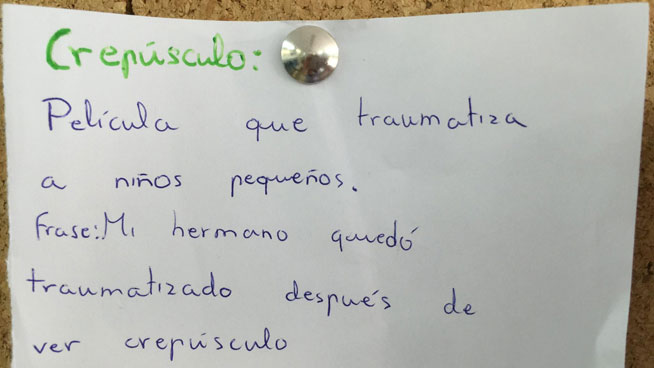 Crepúsculo:
Película que traumatiza
a niños pequeños.
Frase: Mi hermano quedó
traumatizado después de
ver crepúsculo